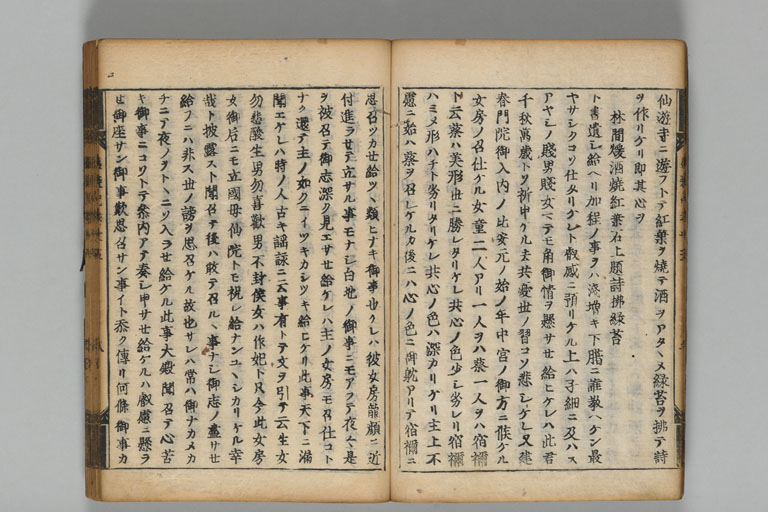 仙遊寺ニ遊フトテ紅葉ヲ燒テ酒ヲアタヽメ緑苔ヲ拂テ詩
ヲ作リケリ即其心ヲ
林間煖酒燒紅葉石上題詩拂緑苔
ト書遺シ給ヘリ加程ノ事ヲハ淺増キ下臈ニ誰教ヘケン最
ヤサシクコソ仕タリケレト叡感ニ預リケル上ハ子細ニ及ハス
アヤシノ賤男賤女マテモ角御情ヲ懸サセ給ヒケレハ此君
千秋萬歳トソ祈申ケル去共憂世ノ習コソ悲シケレ又建
春門院御入内ノ比安元ノ始ノ年中宮ノ御方ニ候ケル
女房ノ召仕ケル女童二人アリ一人ヲハ葵一人ヲハ宿禰
ト云葵ハ美形世ニ勝レタリケレ共心ノ色少シ劣レリ宿禰
ハミメ形ハチト劣リタリケレ共心ノ色ハ深カリケリ主上不
慮ニ始ハ葵ヲ召レケルカ後ニハ心ノ色ニ御耽アリテ宿禰ニ
思召ツカセ給ツヽ類ヒナキ御事也ケレハ彼女房龍顔ニ近
付進ラセテ立サル事モナシ白地ノ御事ニモアラテ夜々是
ヲ彼召テ御志深ク見エサセ給ケレハ主ノ女房モ召仕コト
ナク還テ主ノ如クニイツキカシツキ給ヒケリ此事天下ニ漏
聞エケレハ時ノ人古キ謡詠ニ云事有トテ文ヲ引テ云生女
勿悲酸生男勿喜歡男不封侯女ハ作妃ト只今此女房
女御后ニモ立國母仙院トモ祝レ給ナンユヽシカリケル幸
哉ト披露ス聞召テ後ハ敢テ召ルヽ事ナシ御志ノ盡サセ
給フニハ非ス世ノ謗ヲ思召ケル故也サレハ常ハ御ナカメカ
チニテ夜ノヲトヽニソ入ラセ給ケル此事大殿聞召テ心苦
キ御事ニコソトテ參内アテ奏シ申サセ給ケルハ叡慮ニ懸ラ
セ御座サン御事歎思召サン事イト忝ク傳リ何條御事カ